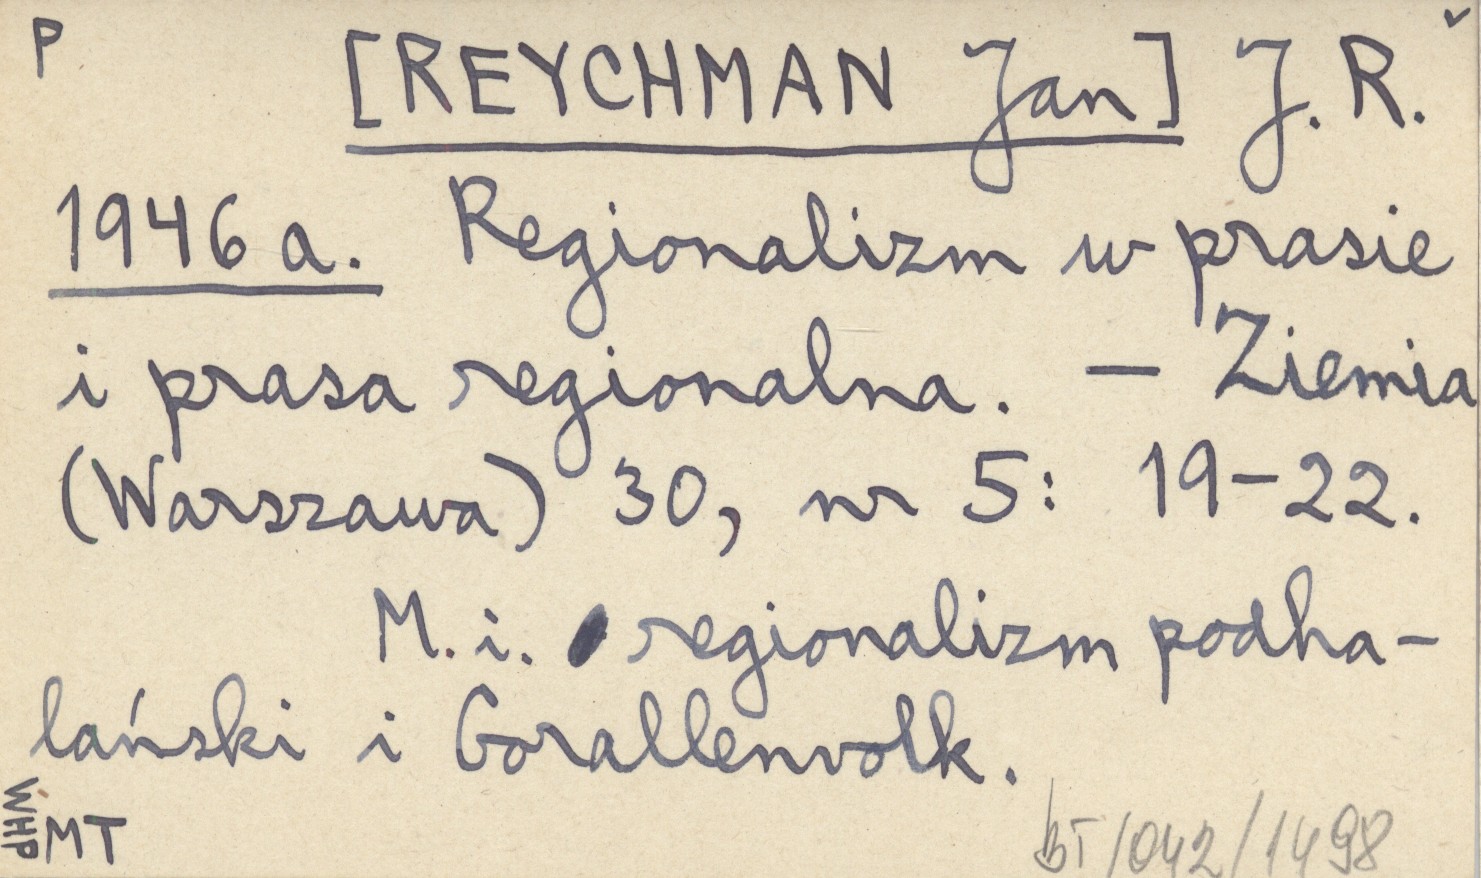 P
[REYCHMAN Jan] J. R.
1946 a. Regionalizm w prasie
i prasa regionalna. — Ziemia
(Warszawa) 30, nr 5: 19-22.
M. i. regionalizm podha-
lański i Gorallenvolk.
WHP
MT
BT/042/1498